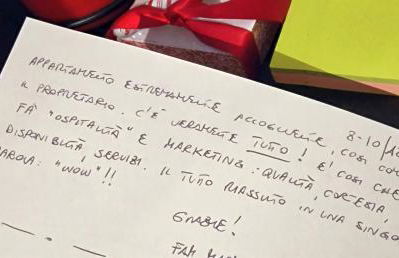 8-10/10
APPARTAMENTO ESTREMAMENTE ACCOGLIENTE, COSÌ COME
IL PROPRIETARIO. C'È VERAMENTE TUTTO! È COSÌ CHE
FA "OSPITALITÀ" E MARKETING: QUALITÀ, CORTESIA,
DISPONIBILITÀ, SERVIZI. IL TUTTO RIASSUNTO IN UNA SINGOLA
PAROLA: "WOW"!!
GRAZIE!